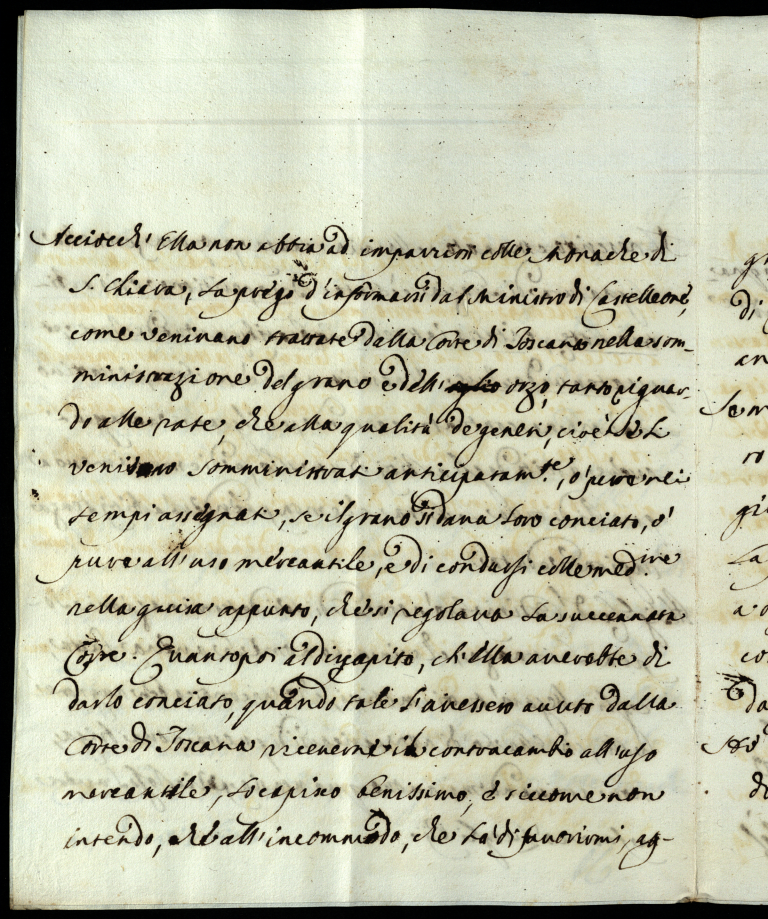 Acciocch' Ella non abbia ad impazzire colle Monache di
S. Chiara, La prego d'informarsi dal Ministro di Castelleone,
come venivano trattate dalla Corte di Toscana nella som-
ministrazione del grano e dell' orzo, tanto riguar-
do alle rate, che alla qualità de generi, cioè se Li
venivano somministrati anticipatam.te, ò pure nei
tempi assegnati, se il grano si dava Loro conciato, ò
pure all'uso mercantile, e di condursi colle med.me
nella guisa appunto, che si regolava La succennata
Corte. Quanto poi al discapito, ch'Ella averebbe di
darlo conciato, quando tale L'avessero avuto dalla
Corte di Toscana riceverne in contracambio all'uso
mercantile, Lo capisco benissimo, e siccome non
intendo, che all'incommodo, che Là di favorirmi, ag-
gi
di
an
Sem
ro
gi
La
a
co
da
di